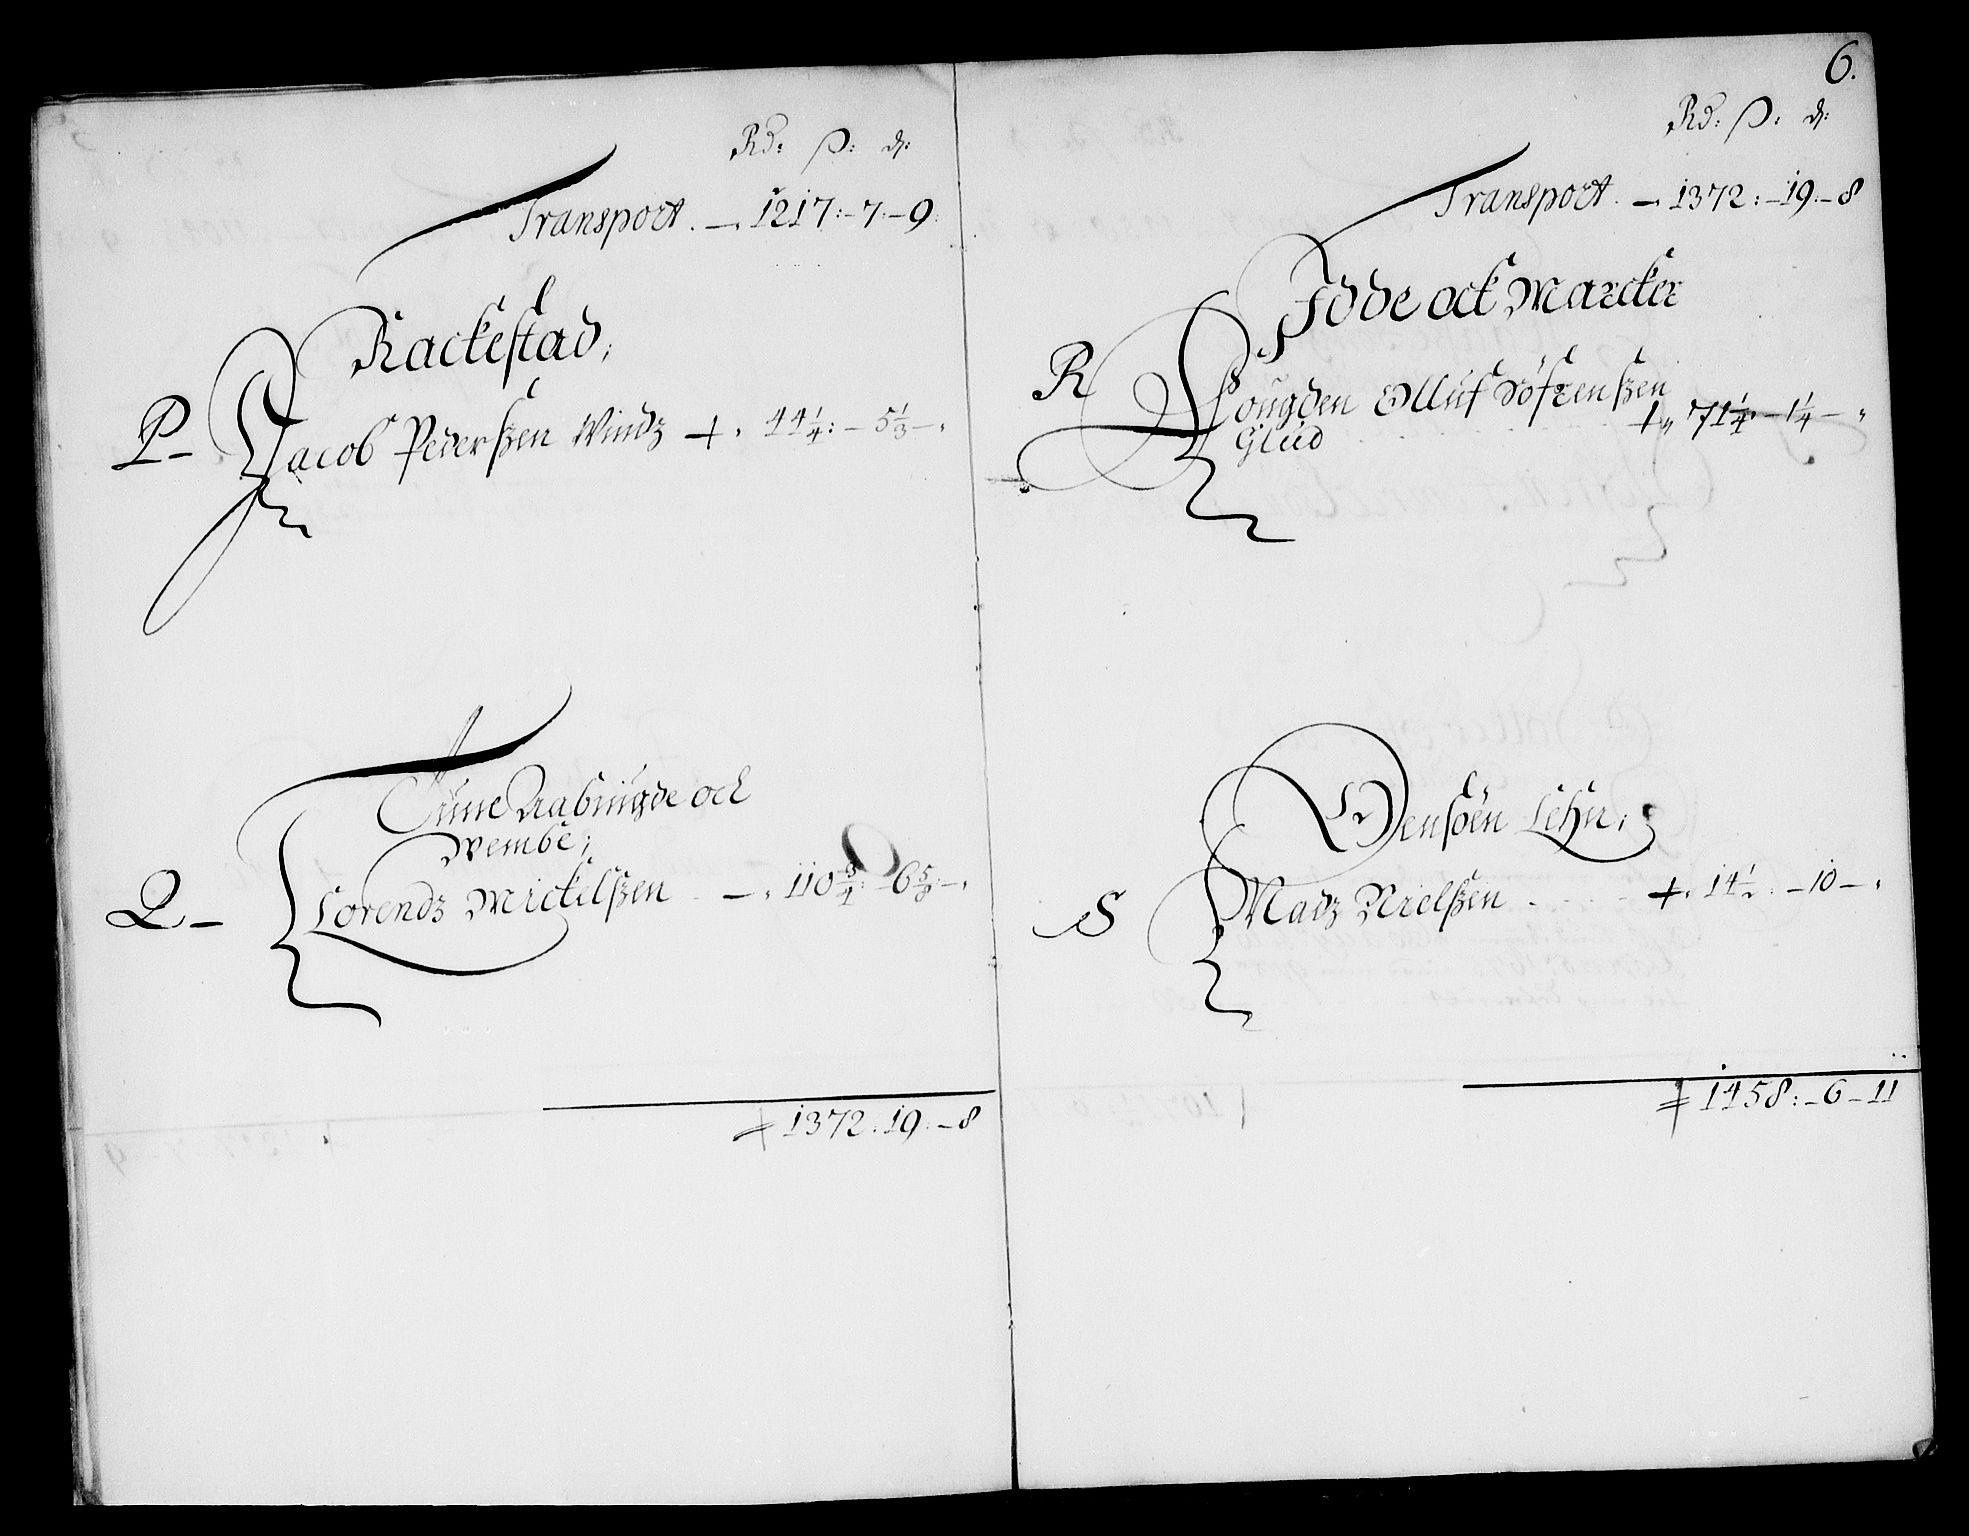 Rd: ß: d:
Transport. — 1217:-7:-9.
Rackestad;
P- Jacob Pederßen Windz + 44¼:-5⅓-,
Tune Aabÿgde och
Wembe;
Q- Lorendz Mickelßen — 110¾:-6
1372:19:-8
6.
Rd: ß: d:
Transport. — 1372:-19:-8
Idde ock Marcker
R Fougden Olluf Söfrenßen
Glud + 71¼:-1¼-,,
Lehn;
S Madz Nielßen . . . +. 14½. -10-,
1458:-6-11